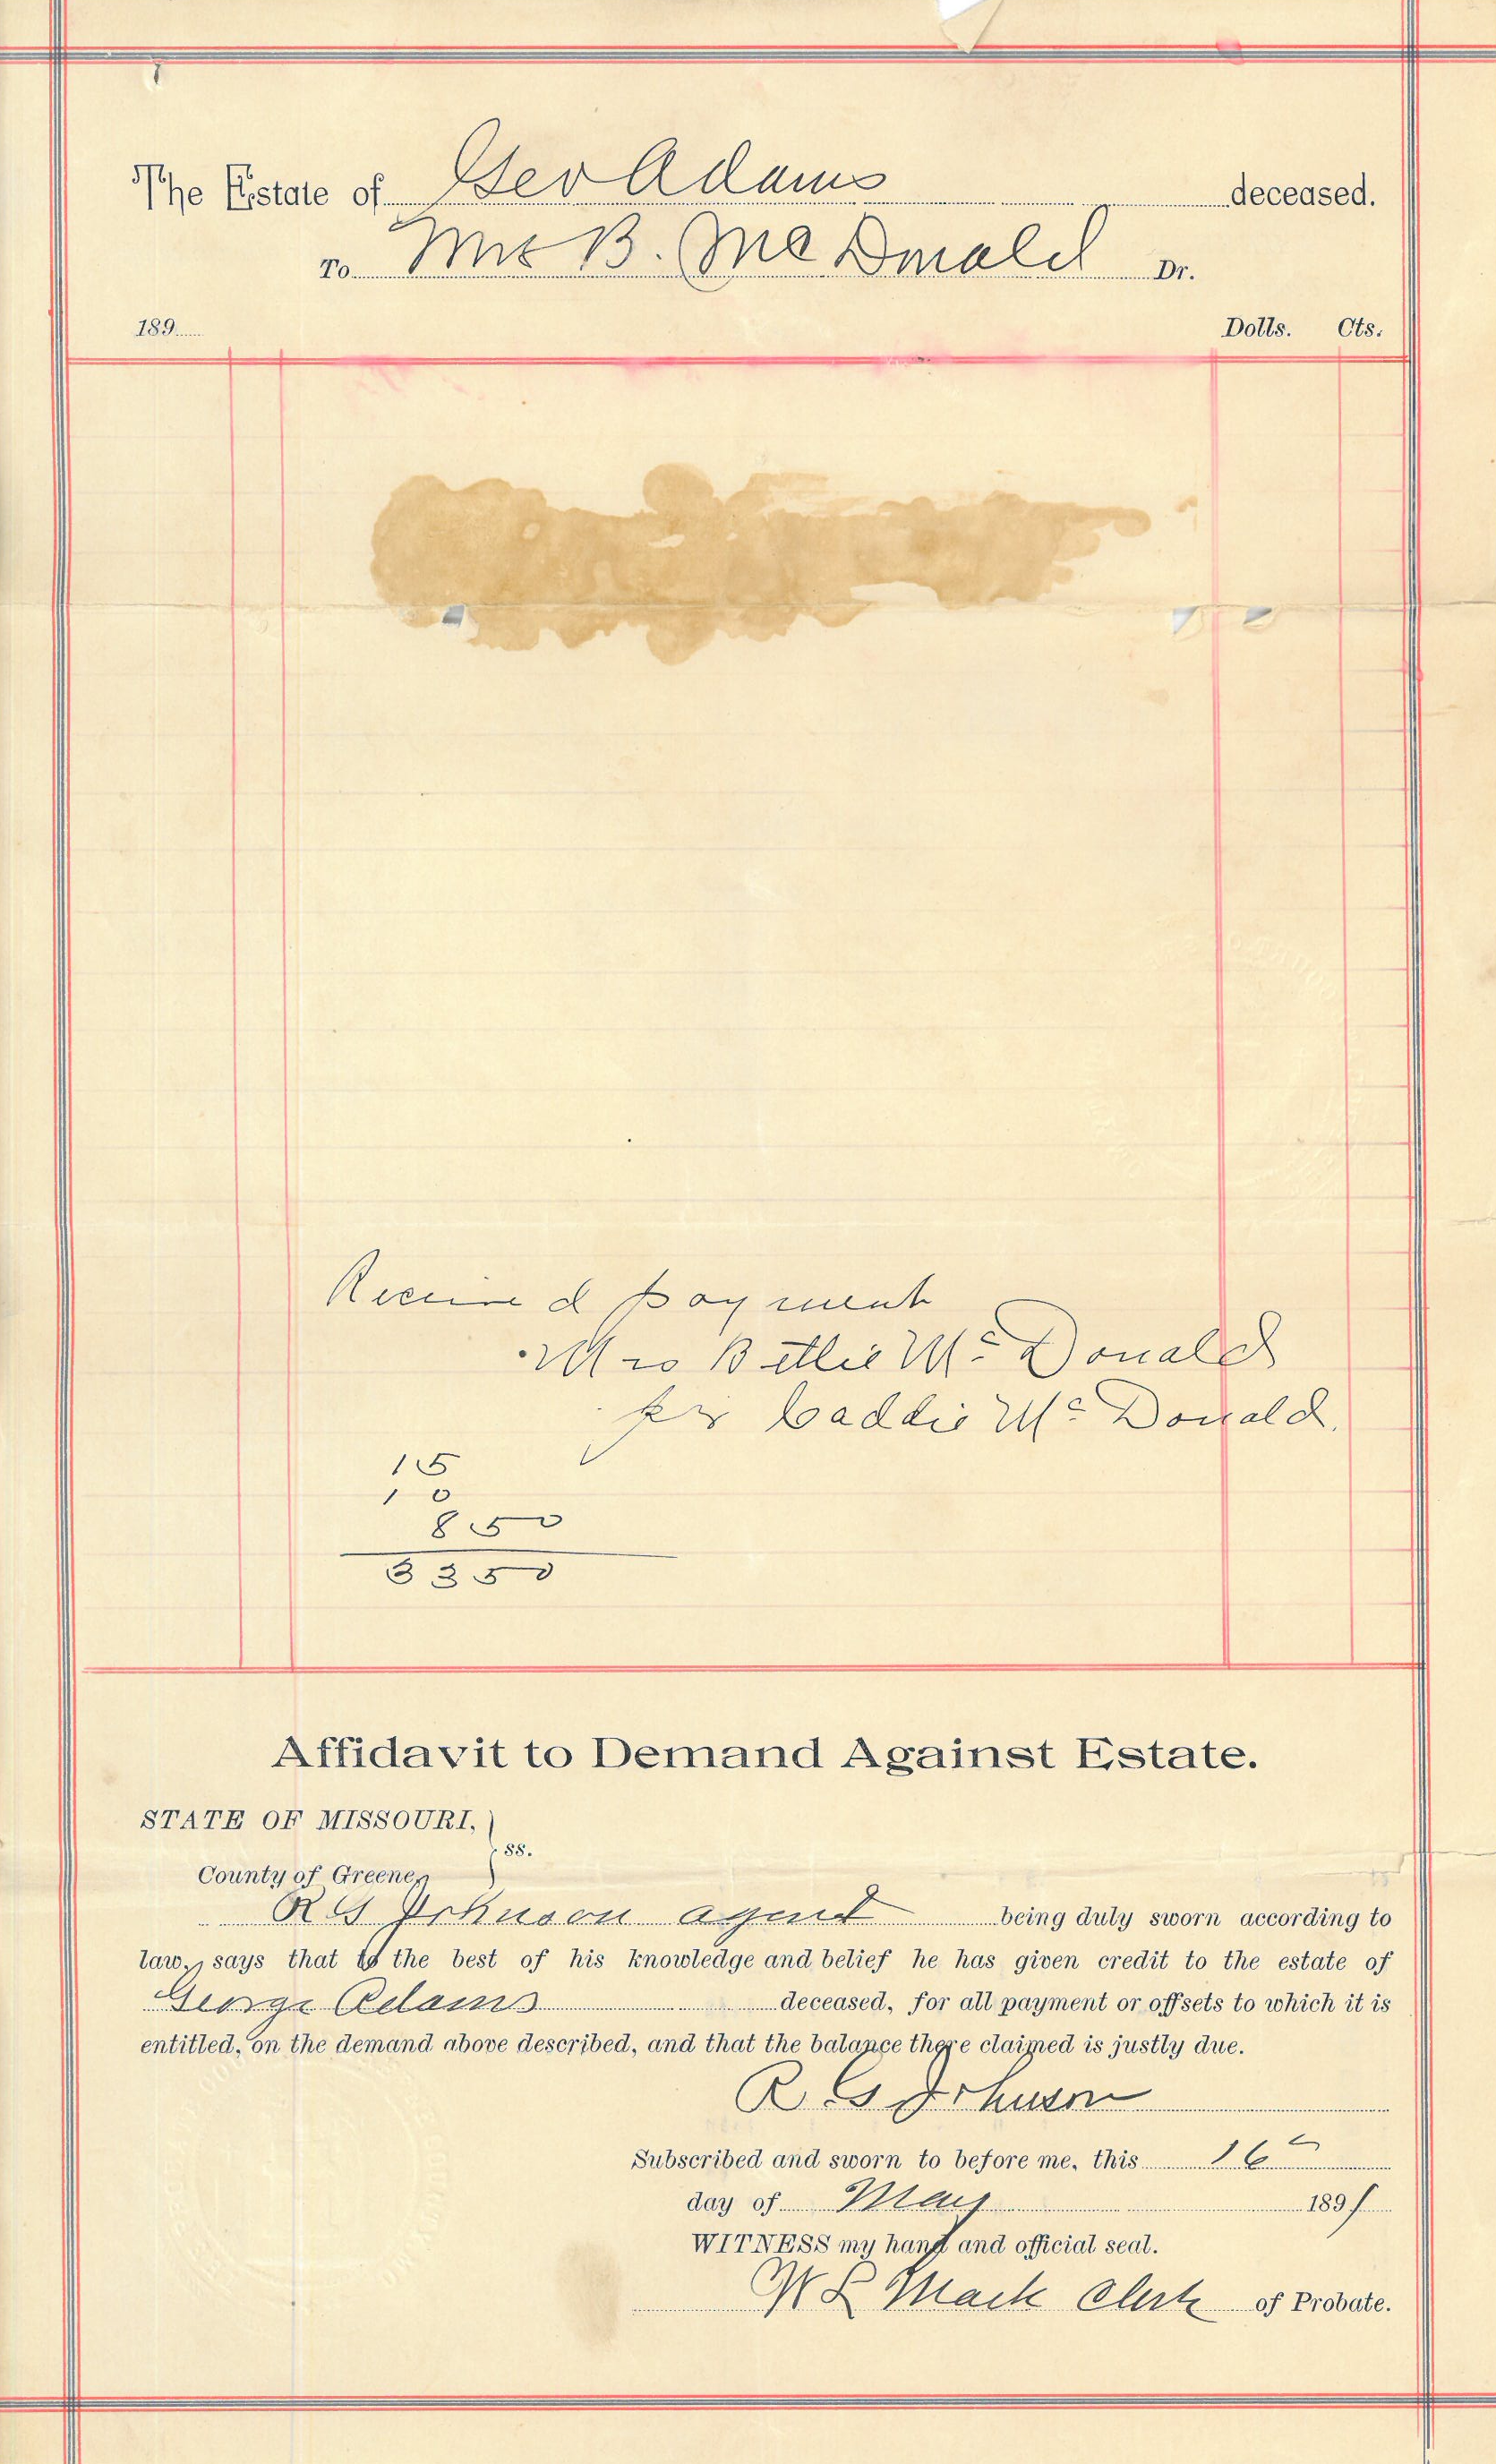 The Estate of Geo Adams deceased.
To Mrs B. McDonald Dr.
189 Dolls. Cts.
Received payment
Mrs Bettie Mc Donald
per Caddie Mc Donald.
15
10
8 50
33 50
Affidavit to Demand Against Estate.
STATE OF MISSOURI,
ss.
County of Greene,
R G Johnson agent being duly sworn according to
law, says that to the best of his knowledge and belief he has given credit to the estate of
George Adams deceased, for all payment or offsets to which it is
entitled, on the demand above described, and that the balance there claimed is justly due.
R G Johnson
Subscribed and sworn to before me, this 16
day of May 1891
WITNESS my hand and official seal.
W L Mack Clerk of Probate.